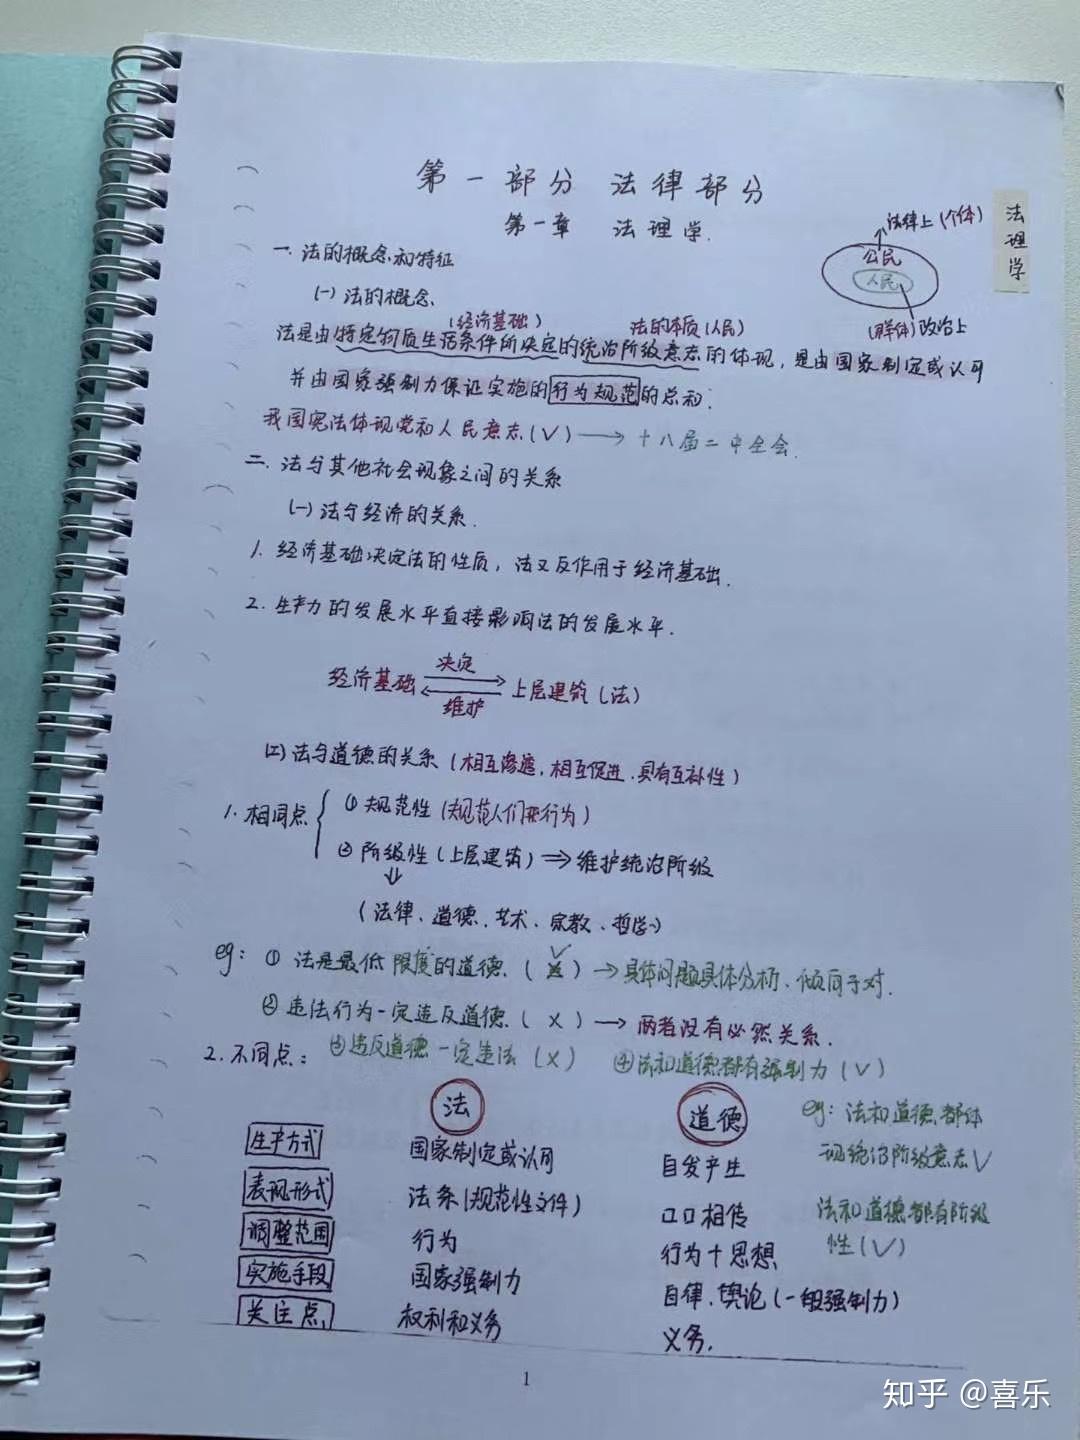 第一部分 法律部分
第一章 法理学.
法理学
法律上(个体)
公民
人民
(群体)政治上
一.法的概念和特征
(一)法的概念.
(经济基础) 法的本质(人民)
法是由特定物质生活条件所决定的统治阶级意志的体现,是由国家制定或认可
并由国家强制力保证实施的行为规范的总和.
我国宪法体现党和人民意志(√)→十八届二中全会.
二.法与其他社会现象之间的关系
(一)法与经济的关系.
1.经济基础决定法的性质,法又反作用于经济基础.
2.生产力的发展水平直接影响法的发展水平.
决定
经济基础 上层建筑(法)
维护
(二)法与道德的关系(相互渗透,相互促进.具有互补性)
1.相同点
①规范性(规范人们行为)
②阶级性(上层建筑)⇒维护统治阶级
(法律、道德、艺术、宗教、哲学)
eg:①法是最低限度的道德.(√)→具体问题具体分析、倾向于对.
②违法行为一定违反道德.(×)→两者没有必然关系.
2.不同点: ③违反道德一定违法(×) ④法和道德都有强制力(√)
法 道德
eg:法和道德都体
现统治阶级意志√
法和道德都有阶级
性(√)
生产方式 国家制定或认可 自发产生
表现形式 法条(规范性文件) 口口相传
调整范围 行为 行为+思想
实施手段 国家强制力 自律、舆论(一般强制力)
关注点 权利和义务 义务.
1
知乎 @喜乐